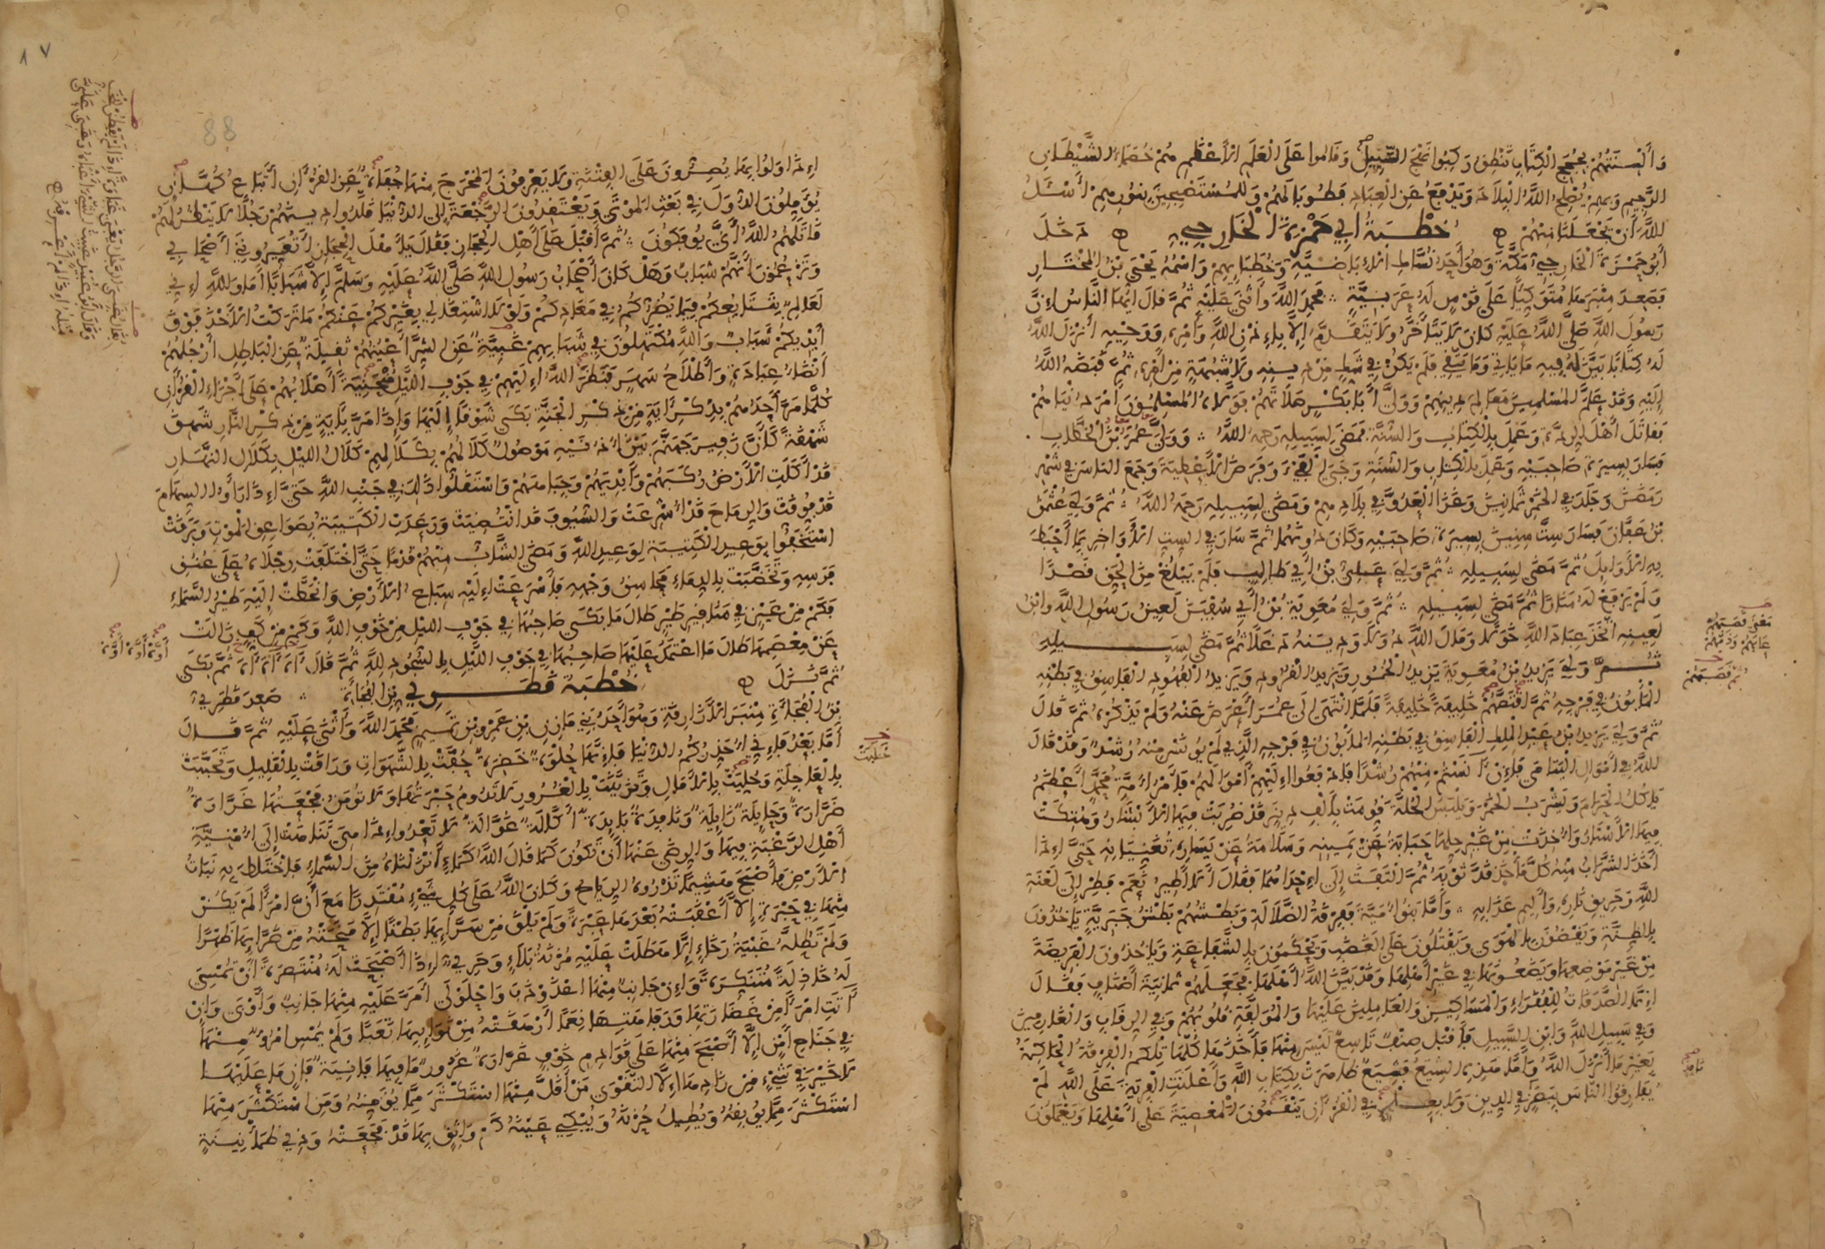 وألسنتهم بحجج الكتاب تنطق ركبوا نهج السبيل وقاموا على العلم الأعظم هم خصماء الشيطان
الرجيم وبهم يصلح الله البلاد ويدفع عن العباد فطوبى لهم وللمستصبحين بنورهم أسئل
الله أن يجعلنا منهم خطبة أبي حمزة الخارجي دخل
أبو حمزة الخارجي مكة وهو أحد نساك الإباضية وخطبائهم واسمه يحيى بن المختار
فصعد منبرها متوكئا على قوس له عربية فحمد الله وأثنى عليه ثم قال أيها الناس إن
رسول الله صلى الله عليه كان لا يتأخر ولا يتقدم إلا بإذن الله وأمره ووحيه أنزل الله
له كتابا بين له فيه ما يأتي وما يتقي فلم يكن في شك من دينه ولا شبهة من أمره ثم قبضه الله
إليه وقد علم المسلمين معالم دينهم وولى أبا بكر صلاتهم فولاه المسلمون أمر دنياهم
فقاتل أهل الردة وعمل بالكتاب والسنة فمضى لسبيله رحمه الله وولي عمر بن الخطاب
فسار بسيرة صاحبيه وعمل بالكتاب والسنة وجبى الفيء وفرض الأعطية وجمع الناس في شهر
رمضان وجلد في الخمر ثمانين وغزا العدو في بلادهم ومضى لسبيله رحمه الله ثم ولي عثمن
بن عفان فسار ست سنين بسيرة صاحبيه وكان دونهما ثم سار في الست الأواخر بما أحبط
به الأوائل ثم مضى لسبيله ثم ولي علي بن أبي طالب فلم يبلغ من الحق قصدا
ولم يرفع له منارا ثم مضى لسبيله ثم ولي معوية بن أبي سفين لعين رسول الله وابن
لعينه اتخذ عباد الله خولا ومال الله دولا ودينه دغلا ثم مضى لسبيله
ثم ولي يزيد بن معوية يزيد الخمور ويزيد القرود ويزيد الفهود الفاسق في بطنه
المأبون في فرجه ثم اقتصهم خليفة خليفة فلما انتهى إلى عمر أعرض عنه ولم يذكره ثم قال
ثم ولي يزيد بن عبد الملك الفاسق في بطنه المأبون في فرجه الذي لم يؤنس منه رشد وقد قال
الله في أموال اليتامى فإن آنستم منهم رشدا فادفعوا إليهم أموالهم فأمر أمة محمد أعظم
يأكل الحرام ويشرب الخمر ويلبس الحلة قومت بألف دينر قد ضربت فيها الأبشار وهتكت
فيها الأستار وأخذت من غير حلها حبابة عن يمينه وسلامة عن يساره تغنيانه حتى إذا
أخذ الشراب منه كل مأخذ قد ثوبه ثم التفت إلى إحداهما فقال ألا أطير نعم فطر إلى لعنة
الله وحريق ناره وأليم عذابه وأما بنو أمية ففرقة الضلالة وبطشهم بطش جبرية يأخذون
بالظنة ويقضون بالهوى ويقتلون على الغضب ويحكمون بالشفاعة ويأخذون الفريضة
من غير موضعها ويضعونها في غير أهلها وقد بين الله أهلها فجعلهم ثمانية أصناف فقال
إنما الصدقات للفقراء والمساكين والعاملين عليها والمؤلفة قلوبهم وفي الرقاب والغارمين
وفي سبيل الله وابن السبيل فأقبل صنف تاسع ليس منها فأخذها كلها تلكم الفرقة الحاكمة
بغير ما أنزل الله وأما هذه الشيع فشيع ظاهرت بكتاب الله وأعلنت الفرية على الله لم
يفارقوا الناس ببصر في الدين ولا بعلم في القرآن ينقمون المعصية على أهلها ويعملون
يعني قصتهم
عابهم وذمهم
ثم قصبهم
نافذ
٨٧
88
إذا ولوا بها يصرون على الفتنة ولا يعرفون المخرج منها جفاة عن القرآن أتباع كهان
يؤملون الدول في بعث الموتى ويعتقدون الرجعة إلى الدنيا قلدوا دينهم رجلا لا ينظر لهم
قاتلهم الله أنى يؤفكون ثم أقبل على أهل الحجاز فقال يا أهل الحجاز أتعيروني بأصحابي
وتزعمون أنهم شباب وهل كان أصحاب رسول الله صلى الله عليه وسلم إلا شبابا أما والله إني
لعالم بتتابعكم فيما يضركم في معادكم ولولا اشتغالي بغيركم عنكم ما تركت الأخذ فوق
أيديكم شباب والله مكتهلون في شبابهم غبية عن الشر أعينهم ثقيلة عن الباطل أرجلهم
أنضاء عبادة وأطلاح سهر فنظر الله إليهم في جوف الليل منحنية أصلابهم على أجزاء القرآن
كلما مر أحدهم بذكر آية من ذكر الجنة بكى شوقا إليها وإذا مر بآية من ذكر النار شهق
شهقة كأن زفير جهنم بين أذنيه موصول كلالهم بكلالهم كلال الليل بكلال النهار
قد أكلت الأرض ركبهم وأيديهم وجباههم واستقلوا ذلك في جنب الله حتى إذا رأوا السهام
قد فوقت والرماح قد أشرعت والسيوف قد انتضيت ورعدت الكتيبة بصواعق الموت وبرقت
استخفوا بوعيد الكتيبة لوعيد الله ومضى الشاب منهم قدما حتى اختلفت رجلاه على عنق
فرسه وتخضبت بالدماء محاسن وجهه فأسرعت إليه سباع الأرض وانحطت إليه طير السماء
فكم من عين في منقار طير طال ما بكى صاحبها في جوف الليل من خوف الله وكم من كف زالت
عن معصمها طال ما اعتمد عليها صاحبها في جوف الليل بالسجود لله ثم قال آه آه آه ثم بكى
ثم نزل خطبة قطري بن الفجاءة صعد قطري
بن الفجاءة منبر الأزارقة وهو أحد بني مازن بن عمرو بن تميم فحمد الله وأثنى عليه ثم قال
أما بعد فإني أحذركم الدنيا فإنها حلوة خضرة حفت بالشهوات وراقت بالقليل وتحببت
بالعاجلة وحليت بالآمال وتزينت بالغرور لا تدوم حبرتها ولا تؤمن فجعتها غرارة
ضرارة وحائلة زائلة ونافدة بائدة أكالة غوالة لا تعدو إذا هي تناهت إلى أمنية
أهل الرغبة فيها والرضى عنها أن تكون كما قال الله كماء أنزلناه من السماء فاختلط به نبات
الأرض فأصبح هشيما تذروه الرياح وكان الله على كل شيء مقتدرا مع أن امرأ لم يكن
منها في حبرة إلا أعقبته بعدها عبرة ولم يلق من سرائها بطنا إلا منحته من ضرائها ظهرا
ولم تطله غبية رخاء إلا هطلت عليه مزنة بلاء وحري إذا أصبحت له منتصرة أن تمسي
له خاذلة متنكرة وإن جانب منها اعذوذب واحلولى أمر عليه منها جانب وأوبى وإن
آتت امرأ من غضارتها ورفاهتها نعما أرهقته من نوائبها تعبا ولم يمس امرؤ منها
في جناح أمن إلا أصبح منها على قوادم خوف غرارة غرور ما فيها فانية فان من عليها
لا خير في شيء من زادها إلا التقوى من أقل منها استكثر مما يؤمنه ومن استكثر منها
استكثر مما يوبقه ويطيل حزنه ويبكي عينه كم واثق بها قد فجعته وذي طمأنينة
أوه أوه أوه
خليت